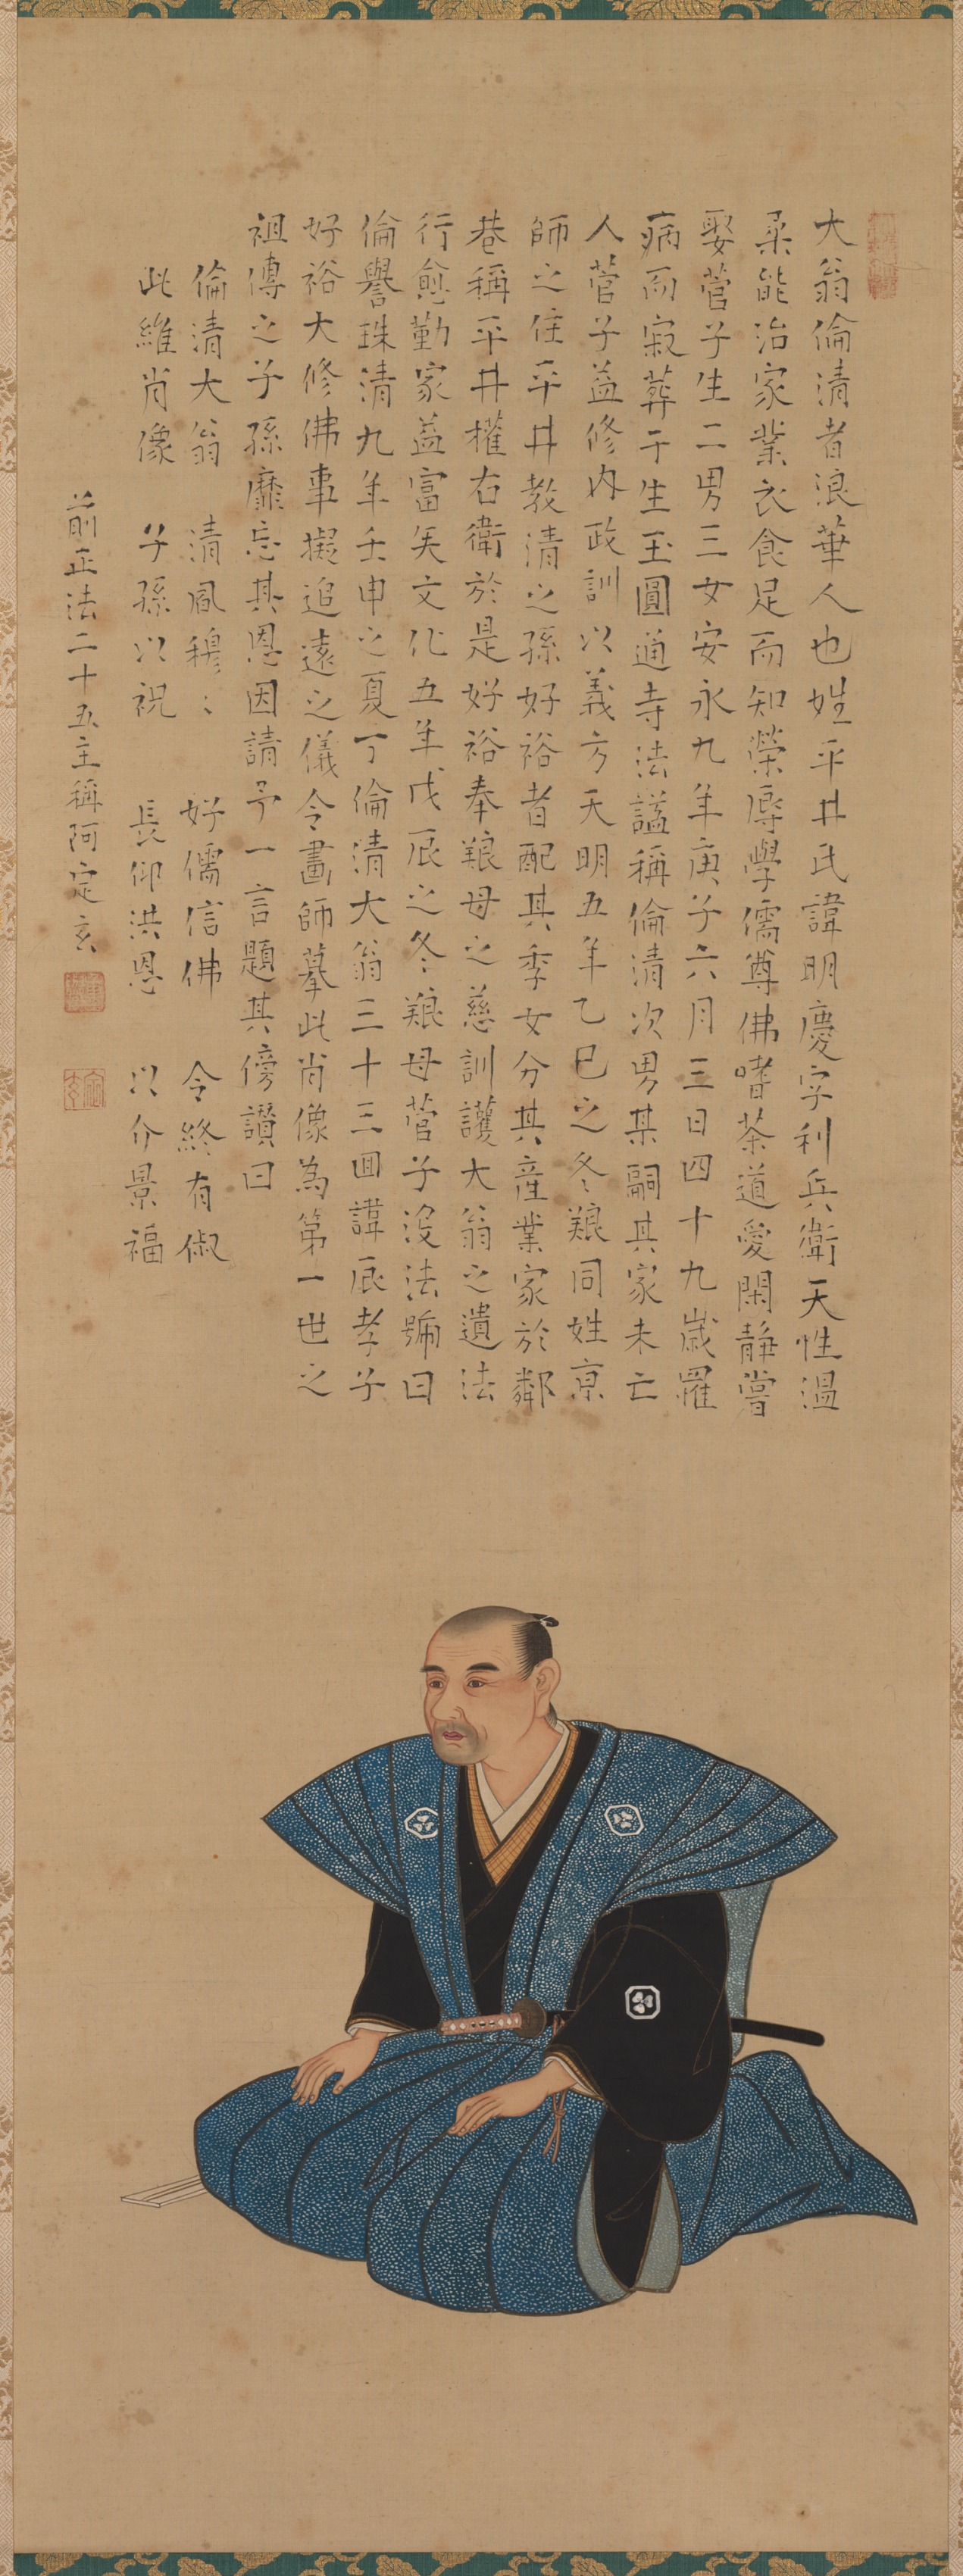 大翁倫清者浪華人也姓平井氏諱明慶字利兵衛天性温
柔能治家業衣食足而知榮辱學儒尊佛嗜茶道愛閑静嘗
娶菅子生二男三女安永九年庚子六月三日四十九歳罹
病而寂葬于生玉圓通寺法謚稱倫清次男某嗣其家未亡
人菅子益修内政訓以義方天明五年乙巳之冬艱同姓京
師之住平井教清之孫好裕者配其季女分其産業家於鄰
巷稱平井權右衛於是好裕奉艱母之慈訓護大翁之遺法
行愈勤家益富矣文化五年戊辰之冬艱母菅子没法號曰
倫譽珠清九年壬申之夏丁倫清大翁三十三回諱辰孝子
好裕大修佛事擬追遠之儀令畫師摹此肖像為第一世之
祖傳之子孫靡忘其恩因請予一言題其傍讃曰
倫清大翁 清風穆〻 好儒信佛 令終有俶
此維肖像 子孫以祝 長仰洪恩 以介景福
前正法二十五主稱阿定玄